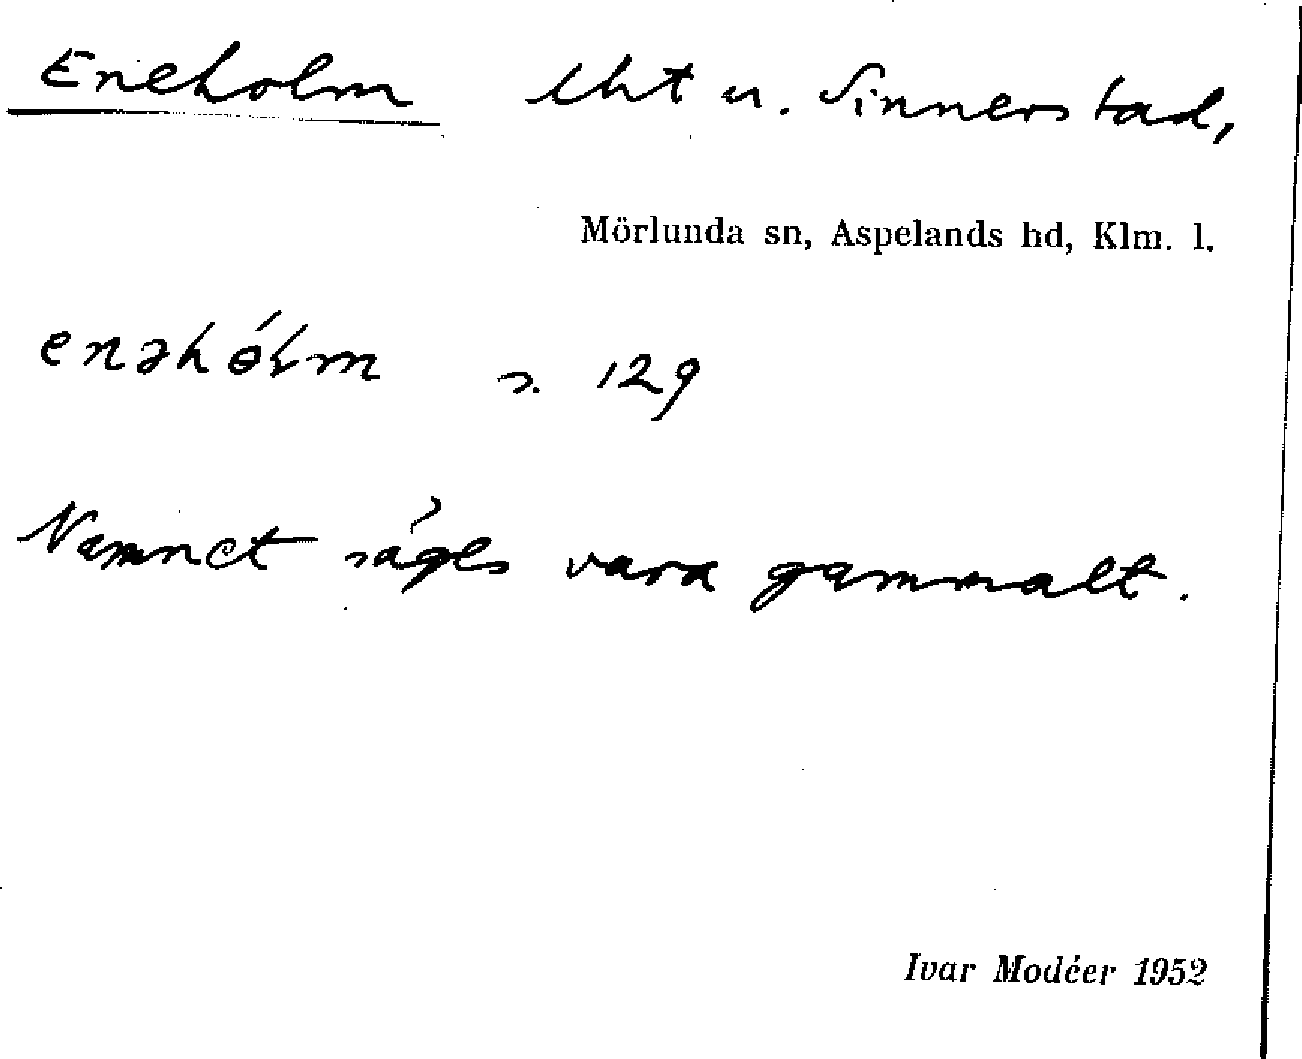 Eneholm lht u. Sinnerstad,
Mörlunda sn, Aspelands hd, Klm. l.
enəhólm s. 129
Namnet säges vara gammalt.
Ivar Modéer 1952